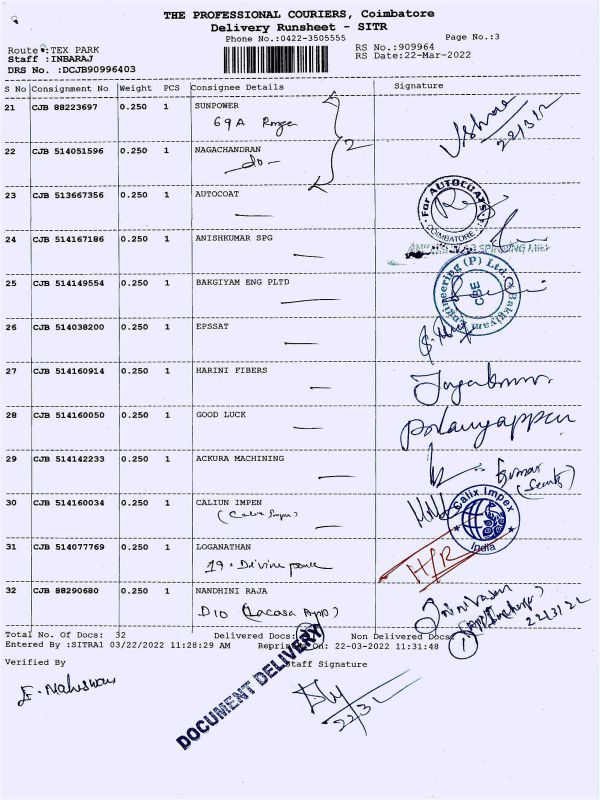 THE PROFESSIONAL COURIERS, Coimbatore
Delivery Runsheet - SITR
Phone No.:0422-3505555 Page No.:3
Route :TEX PARK RS No.:909964
Staff :INBARAJ RS Date:22-Mar-2022
DRS No. :DCJB90996403
S No Consignment No Weight PCS Consignee Details Signature
21 CJB 88223697 0.250 1 SUNPOWER
69A
22 CJB 514051596 0.250 1 NAGACHANDRAN
-do- 2
23 CJB 513667356 0.250 1 AUTOCOAT
For AUTOCOATS
COIMBATORE
24 CJB 514167186 0.250 1 ANISHKUMAR SPG
25 CJB 514149554 0.250 1 BAKGIYAM ENG PLTD
Bakgiyam Engineering (P) Ltd.
CBE
26 CJB 514038200 0.250 1 EPSSAT
27 CJB 514160914 0.250 1 HARINI FIBERS
28 CJB 514160050 0.250 1 GOOD LUCK
29 CJB 514142233 0.250 1 ACKURA MACHINING
Kumar
30 CJB 514160034 0.250 1 CALIUN IMPEN
(Calix Impex)
Calix Impex
India
31 CJB 514077769 0.250 1 LOGANATHAN
19. Divine
H/R
32 CJB 88290680 0.250 1 NANDHINI RAJA
D10 (Lacasa
22/3/22
Total No. Of Docs: 32 Delivered Docs: Non Delivered Docs:
1
Entered By :SITRA1 03/22/2022 11:28:29 AM Reprint On: 22-03-2022 11:31:48
Verified By Staff Signature
DOCUMENT DELIVERY